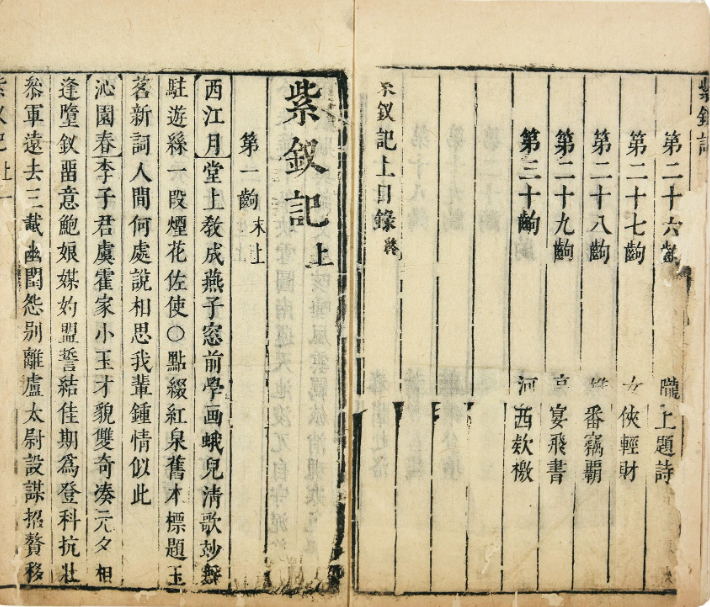 紫釵記
第二十六齣 隴上題詩
第二十七齣 女俠輕財
第二十八齣 番竊霸
第二十九齣 高宴飛書
第三十齣 河西欵檄
紫釵記上目錄終
紫釵記上
第一齣 末上
西江月】堂上教成燕子窓前學画蛾兒清歌玅舞
駐遊絲一段煙花佐使○點綴紅泉舊本標題玉
茗新詞人間何處說相思我輩鍾情似此
沁園春】李子君虞霍家小玉才貌雙奇凑元夕相
逢墮釵畱意鮑娘媒妁盟誓結佳期爲登科抗壯
叅軍遠去三載幽閨怨別離盧太尉設謀招贅移
紫釵記上 一